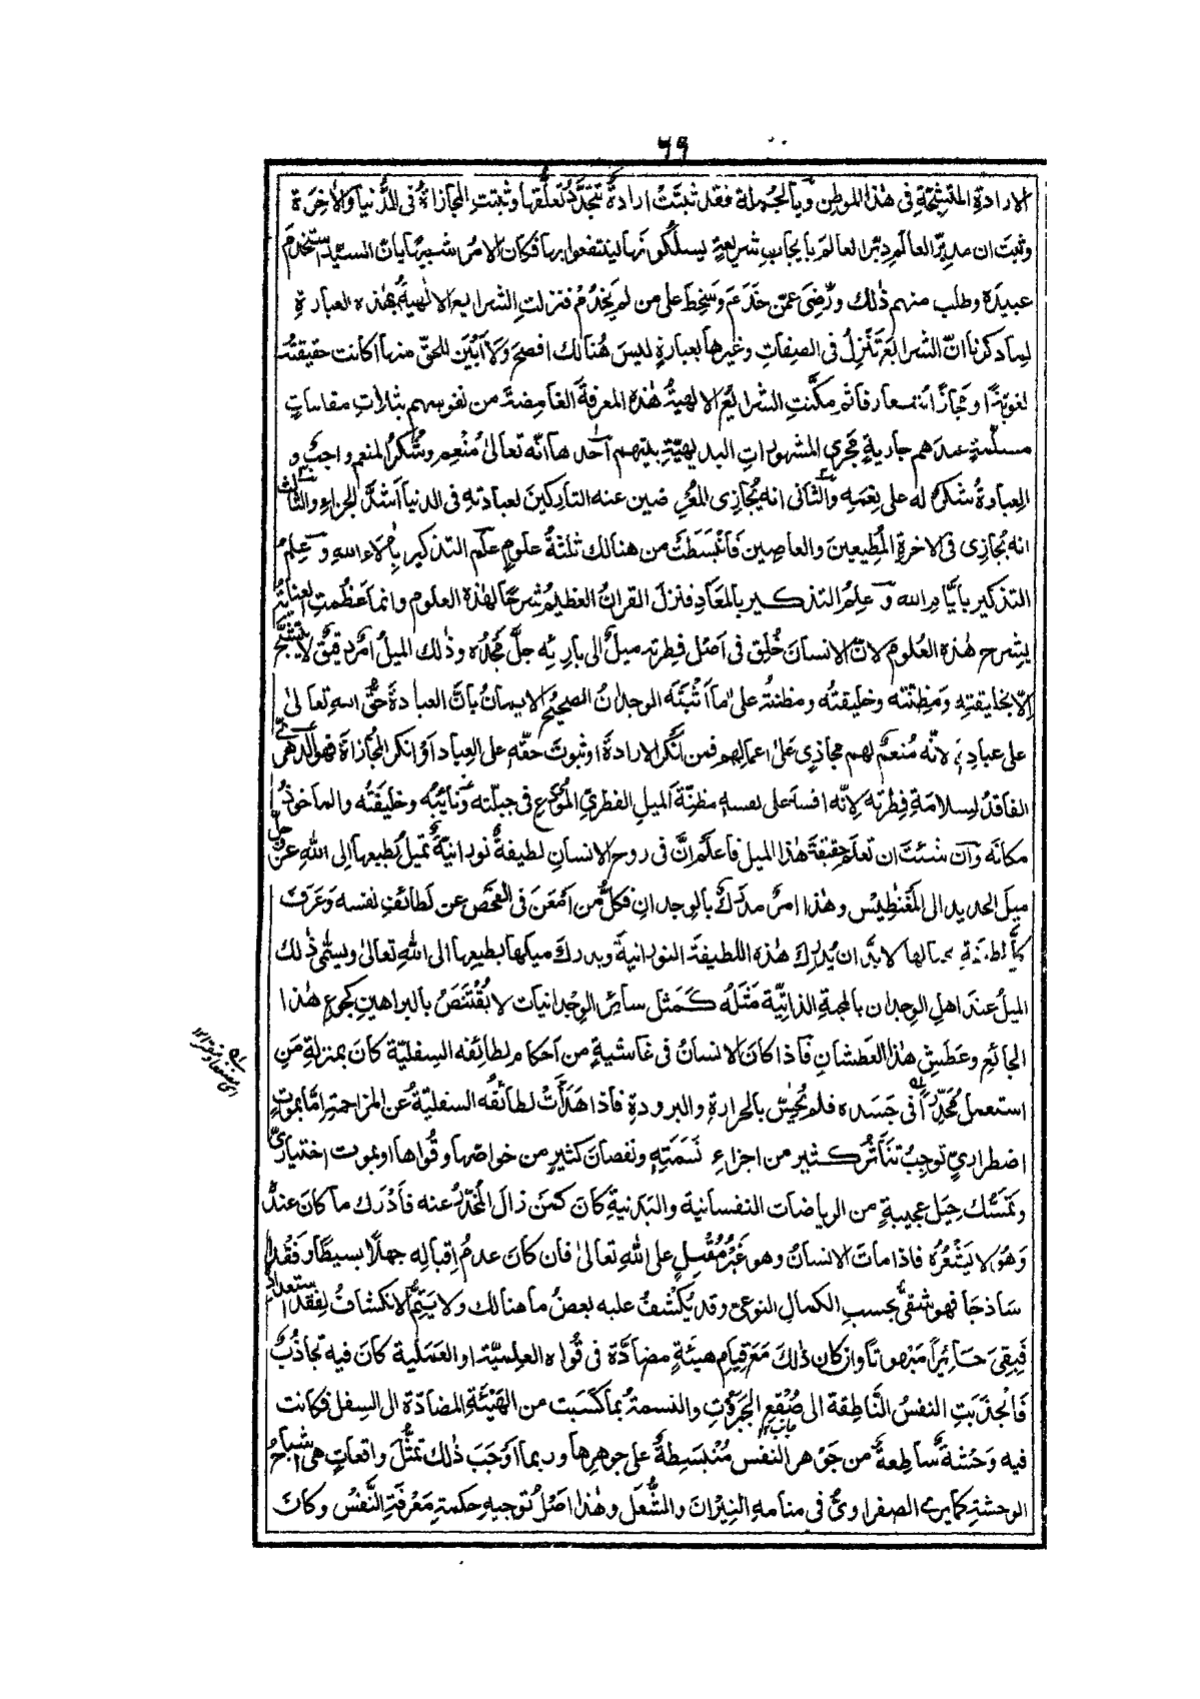 ٦٩
الارادة المتبثحة فى هٰذا الموطن وبالجملة فقد ثبتَتْ ارادةٌ تتجدَّدُ تعلُّقها وثبتت المجازاةُ فى الدُّنيا والاٰخرة
وثبتَ ان مدبّرَ العالَم دبّر العالمَ بايجابِ شريعةٍ يسلُكونها لينتفعوا بها فكان الامرُ شبيهًا بانّ السيّد استخدم
عبيدَهُ وطلب منهم ذٰلك ورَضِىَ عمّن خَدَمَ وسَخِطَ على من لم يَخْدُمْ فنزلتِ الشرايع الالٰهيةُ بهٰذه العبارة
لِما ذكرنا انّ الشرايعَ تَنْزِلُ فى الصِفاتِ وغيرِها بعبارةٍ ليسَ هُنالك افصحَ ولا اَبْيَن للحقّ منها اكانت حقيقةً
لغويّةً او مجازًا متعارفًا ثم مكَّنتِ الشرايعُ الالٰهيةُ هٰذه المعرفةَ الغامضةَ من نفوسهم بثلاث مقاماتٍ
مسلَّمةٍ عندهم جاريةٍ مَجرى المشهوراتِ البديهيّةِ بينهم آحدها انّه تعالىٰ مُنْعِم وشُكرُ المنعم واجبٌ و
العبادةُ شكرٌ له على نِعَمِه والثانى انه يُجازِى المُعْرِضين عنه التاركينَ لعبادتهِ فى الدنيا اَشدَّ الجزاءِ والثالث
انه يُجازِى فى الاٰخرةِ المُطِيعين والعاصِين فانْبَسَطَتْ من هنالك ثلٰثةُ علومٍ علم التذكير باٰلاء اللهِ وعلمُ
التذكير بايّام الله وعلمُ التذكير بالمَعَادِ فنزل القراٰنُ العظيم شرحًا لهٰذه العلوم وانما عَظُمتِ العنايةُ
بشرح هٰذه العُلوم لانّ الانسانَ خُلِق فى اَصْل فِطرتِه ميلٌ الى بارئِه جلَّ مَجْدُه وذٰلك الميلُ اَمْرٌ دقيقٌ لا يتشبَّح
اِلّا بخليقتِه ومَظِنّته وخليقتُه ومظنتُه علىٰ ما اَثْبَتَه الوجدانُ الصحيحُ الايمانُ بانَّ العبادةَ حقُّ اللهِ تعالىٰ
على عبادِه لانّه مُنعمٌ لهم مجازٍى علىٰ اعمالِهم فمن اَنْكر الارادةَ او ثبوتَ حقّه على العِباد اَوْ انكر المُجازاةَ فهو الدهرىُّ
الفاقدُ لسلامةِ فِطْرتِه لانّه افسدَ على نفسِه مظنّةَ الميلِ الفطرىِّ المُوْدَعِ فى جبلّته ونائبُه وخليقتُه والماخوذُ
مكانَه وان شئتَ ان تعلمَ حقيقةَ هٰذا الميل فاعلَمْ اَنَّ فى روح الانسانِ لطيفةً نورانيّةً تميلُ بطبعها اِلى اللهِ عزّ وجلّ
ميلَ الحديد الى المَغْنَطِيْس وهٰذا امرٌ مدرَكٌ بالوجدانِ فكلُّ مَن اَمْعَنَ فى الفحص عن لطائفِ نفسِه وعَرَفَ
كلَّ لطيفةٍ بحيالها لابدّ ان يُدْرِكَ هٰذه اللطيفةَ النورانيةَ ويدركَ ميلَها بطبعها الى اللهِ تعالىٰ ويسمّٰى ذٰلك
الميلُ عندَ اهلِ الوجدان بالمحبّةِ الذاتيّةِ مَثَلُه كَمَثل سائر الوِجْدانيات لا يُقْتَنَصُ بالبراهينِ كجوعِ هٰذا
الجائعِ وعَطَشِ هٰذا العَطشانِ فاذا كان الانسانُ فى غاشيةٍ من اَحكام لطائفه السِفليّة كانَ بمنزلةِ مَنِ
استعمل مُخَدِّرًا فى جَسَده فلم يُحِسَّ بالحرارةِ والبرودةِ فاذا هَدَأَتْ لطائفُه السفليّةُ عن المزاحمةِ اِمّا بموتٍ
اضطرارىٍّ توجِبُ تَناثُرَ كثير من اجزاءِ نَسَمَتِه ونقصانَ كثيرٍ من خواصّها وقُواها او بموت اختيارىٍّ
وتمسُّك حِيَل عجيبةٍ من الرياضات النفسانية والبَدنيةِ كانَ كمَن زالَ المُخدِّرُ عنه فاَدْرَك ما كان عنده
وَهُوَ لا يَشْعُرُ فاذا ماتَ الانسانُ وهو غَيْرُ مُقْبِلٍ على اللهِ تعالىٰ فان كانَ عدمُ اِقبالِه جهلًا بسيطًا وَفَقْدًا
سَاذجًا فهو شقىٌّ بحسبِ الكمالِ النوعىِّ وقد يُكْشَفُ عليه بعضُ ما هنالك ولا يَتِمُّ الانكشافُ لِفقدِ استعدادِه
فَيبقىٰ حَائِرًا مَبْهوتًا وان كانَ ذٰلكَ مَعَ قيامِ هيئةٍ مضادَّة فى قُواه العِلميّةِ او العَمَلية كانَ فيه تجاذُبٌ
فَانْجذبَتِ النفسُ النَّاطقة الى صُقْعِ الجَبَروتِ والنسمةُ بما كَسَبت من الهَيْئَةِ المضادّة الى السفل فكانت
فيه وَحْشةٌ سَاطِعةٌ من جَوْهر النفس مُنْبَسِطةٌ على جوهرِها وربما اَوْجَبَ ذٰلك تمثُّلَ واقعاتٍ هى اَشباحُ
الوحشةِ كما يرى الصفراوىُّ فى منامه النِيْرانَ والشُّعَل وهٰذا اَصْلُ توجيهِ حكمةِ مَعْرفةِ النَّفْسِ وكانَ